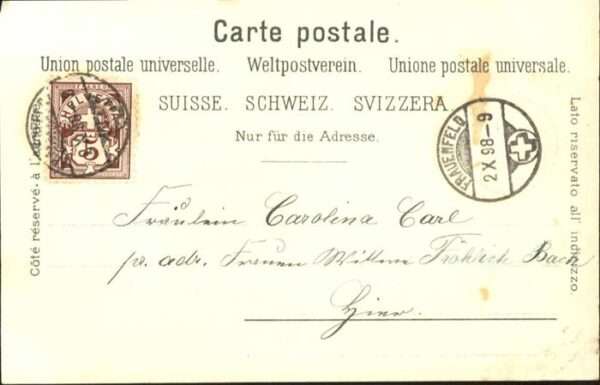 Carte postale.
Union postale universelle. Weltpostverein. Unione postale universale.
SUISSE. SCHWEIZ. SVIZZERA.
Nur für die Adresse.
Côté réservé à l'
Lato riservato all' indirizzo.
5
FRAUENFELD
2 X 98-9
Fräulein Carolina Carl
p. adr. Frauen Fröhlich Bach
Hier.